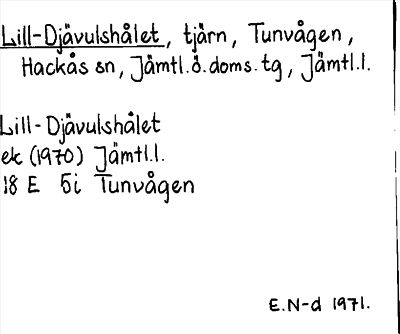 Lill-Djävulshålet, tjärn, Tunvågen,
Hackås sn, Jämtl.ö.doms.tg, Jämtl.l.
Lill-Djävulshålet
ek (1970) Jämtl.l.
18 E 5i Tunvågen
E.N-d 1971.